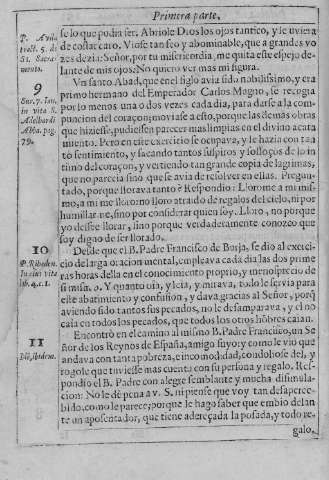 Primera parte.
se lo que podia ser. Abriole Dios los ojos tantico, y le uviera
de costar caro. Viose tan feo y abominable, que a grandes vo
zes dezia: Señor, por tu misericordia, me quita este espejo de-
lante de mis ojos: No quiero ver mas mi figura.
Vn santo Abad, que en el siglo avia sido nobilissimo, y era
primo hermano del Emperador Carlos Magno, se recogia
por lo menos una o dos vezes cada dia, para darse a la com-
puncion del coraçon; moviase a esto, porque las demas obras
que hiziesse, pudiessen parecer mas limpias en el divino acata
miento. Pero en este exercicio se ocupava, y le hazia con tan
to sentimiento, y sacando tantos suspiros y solloços de lo in
timo del coraçon, y vertiendo tan grande copia de lagrimas,
que no parecia sino que se avia de resolver en ellas. Pregun-
tado, porque llorava tanto? Respondio: Llorome a mi mis-
mo, a mi me lloro: no lloro atraido de regalos del cielo, ni por
humillarme, sino por considerar quien soy. Lloro, no porque
yo dessee llorar, sino porque verdaderamente conozco que
soy digno de ser llorado.
Desde que el B. Padre Francisco de Borja, se dio al exerci-
cio de la oracion mental, empleava cada dia las dos prime
ras horas della en el conocimiento proprio, y menosprecio de
si mismo. Y quanto oia, y leia, y mirava, todo le servia para
este abatimiento y confusion, y dava gracias al Señor, porq̃
aviendo sido tantos sus pecados, no le desamparava, y el no
caia en todos los pecados, que todos los otros hõbres caian.
Encontrò en el camino al mismo B. Padre Francisco, un Se
ñor de los Reynos de España, amigo suyo: y como le vio que
andava con tanta pobreza, e incomodidad, condoliose del, y
rogole que tuviesse mas cuenta con su persona y regalo. Res-
pondio el B. Padre con alegre semblante y mucha disimula-
cion: No le dè pena a v. S. ni piense que voy tan desaperce-
bido, como le parece: porque le hago saber que embio delan
te un aposentador, que tiene adereçada la posada, y todo re-
galo.
P. Avila
tract. 5. de
St. Sacra-
mento.
9
Sur. 7. Ian.
in vita S.
Adelhardi
Abba. pag.
79.
10
P. Ribaden.
In eius vita
lib. 4. c. 1.
11
Ibidem.